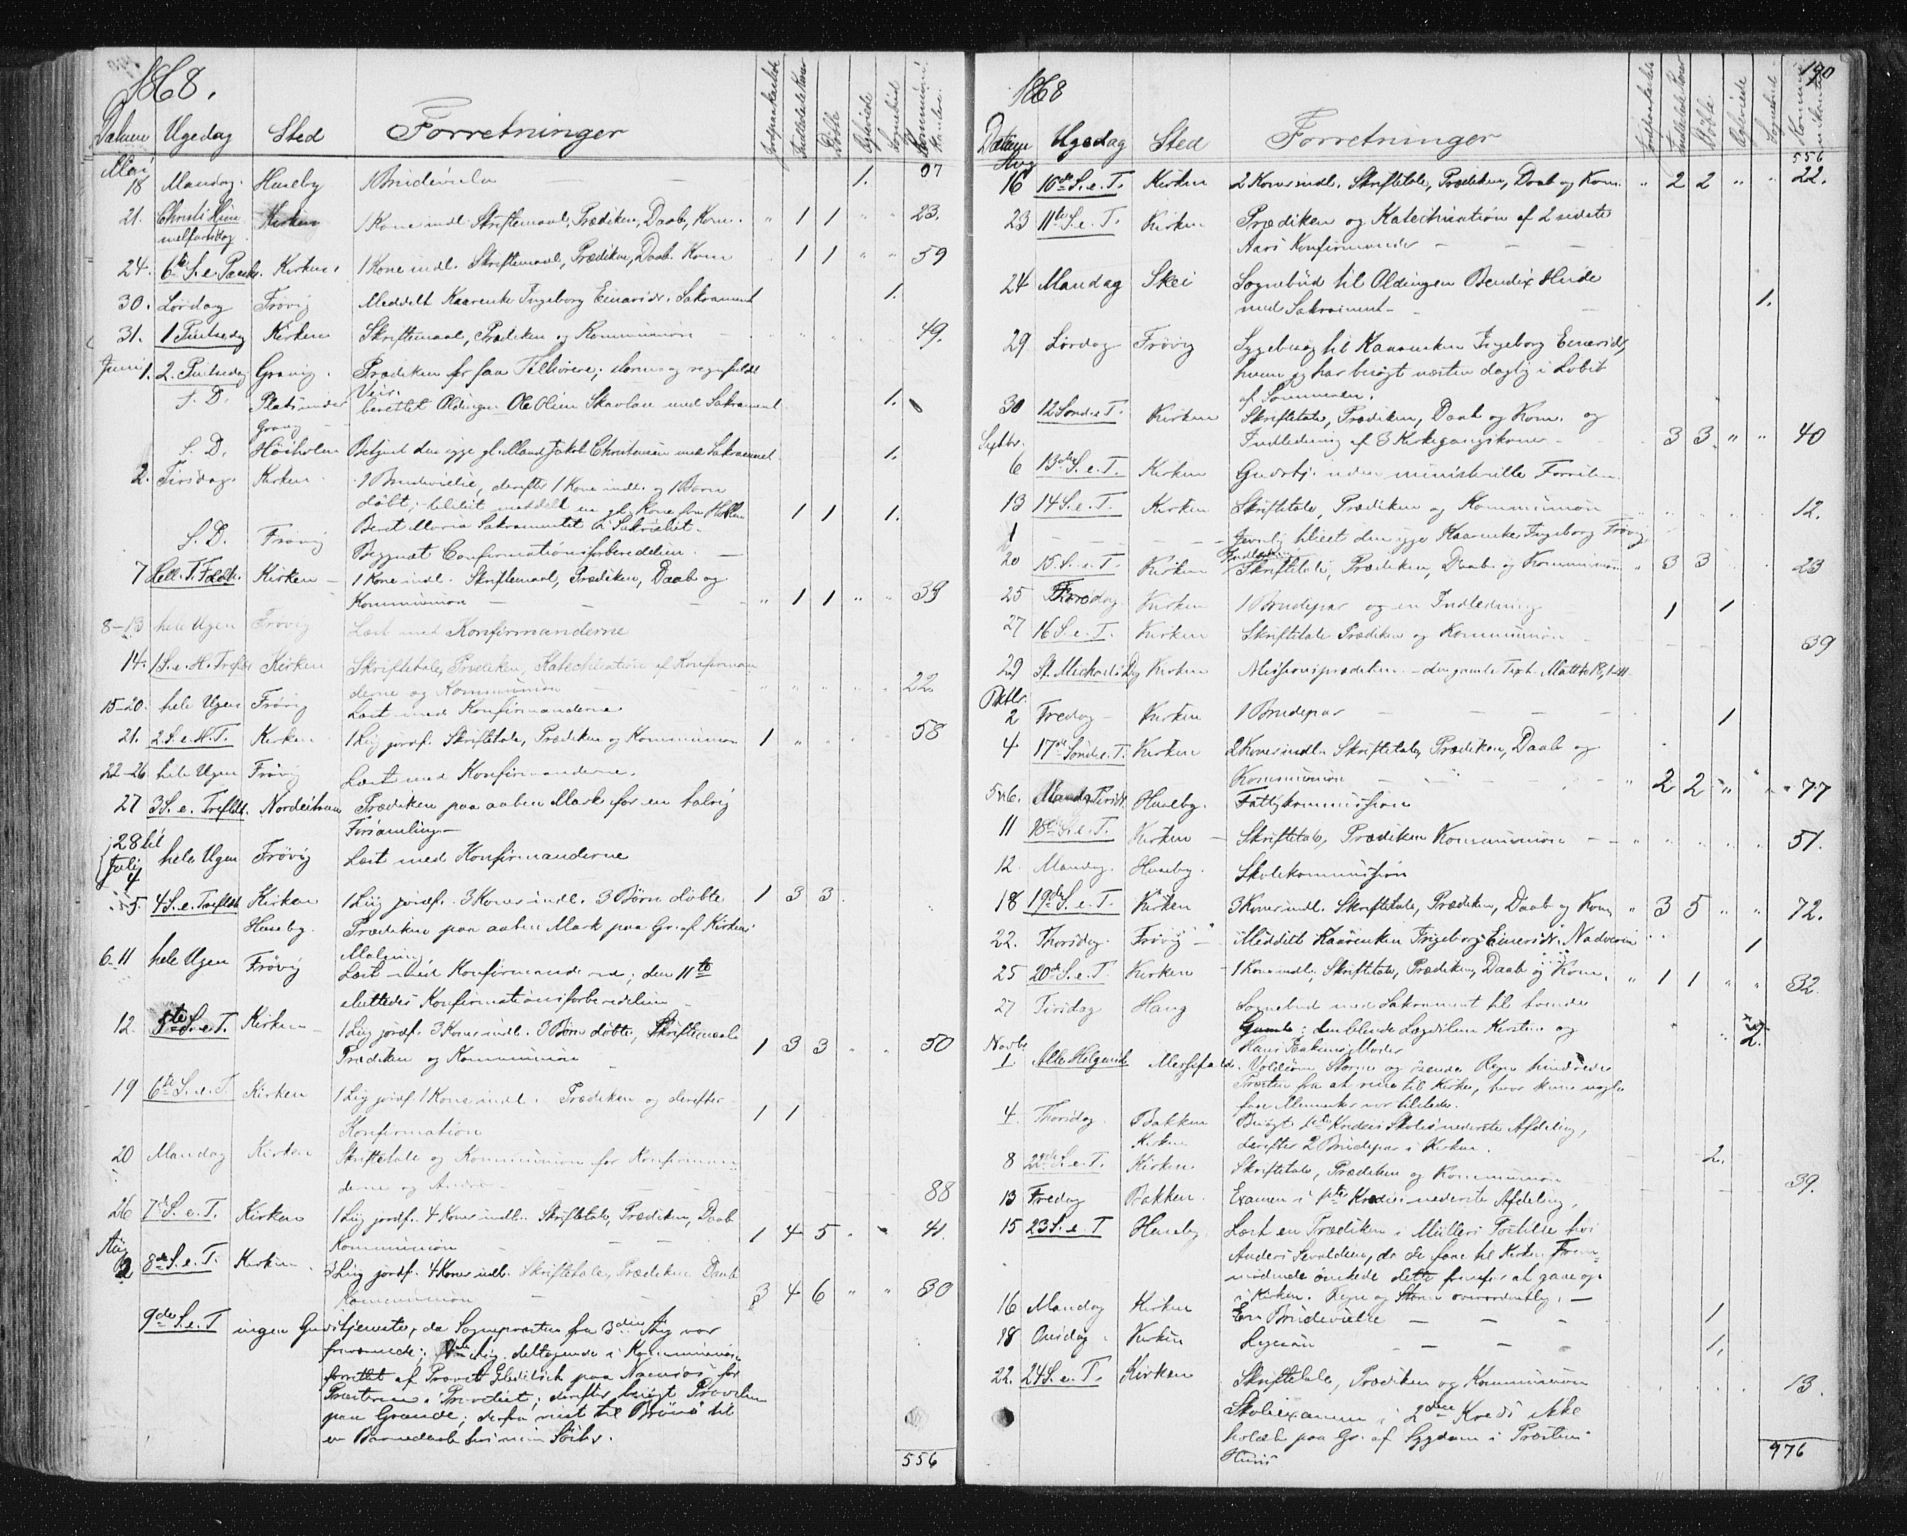 1868.
Datum Ugedag Sted Forretninger Jordpaakastede Indledede Koner Døbte Ægteviede Sognebud Kommunikanter
Mai
18 Mandag. Huseby 1 Brudevielse 1. 07
21. Christi Himmelfartsdag. Kirken 1 Kone indl. Skriftemaal, Prædiken, Daab, Kom. " 1 1 " " 23.
24. 6te S. e. Paaske. Kirken. 1 Kone indl. Skriftemaal, Prædiken, Daab. Kom 1 1 " " 59
30. Lørdag Frøvig Meddelt Kaarenke Ingeborg Einarsdr. Sakrament 1.
31. 1 Pintsedag Kirken Skriftemaal, Prædiken og Kommunion 49.
Juni 1. 2. Pintsedag Gravvig. Prædiken for faa Tilhørere; storm og regnfuldt
Veir.
S. D. Plads under berettet Oldingen Ole Olsen Skavlan med Sakrament 1.
S. D. Høiholm Betjent den syge gl. Mand Jakob Christensen med Sakramentet 1.
2. Tirsdag. Kirken. 1 Brudevielse, derefter 1 Kone indl. og 1 Barn
døbt; tilsidst meddelt en gl. Kone fra 1 1 1.
Berit Maria Sakramentet i Sakristiet.
S. D. Frøvig Begyndt Confirmationsforberedelsen.
7 Hell. T. Fdsd. Kirken 1 Kone indl. Skriftemaal, Prædiken, Daab og
Kommunion " 1 1 " " 39
8-13 hele Ugen Frøvig Læst med Konfirmanderne
14. 1 S. e. H. Trefold. Kirken Skriftetale, Prædiken, Katechisation af Konfirman
derne og Kommunion 22.
15-20. hele Ugen Frøvig Læst med Konfirmanderne
21. 2 S. e. H. T. Kirken 1 Lig jordf. Skriftetale, Prædiken og Kommunion 1 " 58
22-26 hele Ugen Frøvig Læst med Konfirmanderne.
27 3 S. e. Trefold. Nordeihavn Prædiken paa aaben Mark for en talrig
Forsamling
28 til Juli 4 hele Ugen Frøvig Læst med Konfirmanderne
5. 4 S. e. Trefold. Kirken 1 Lig jordf. 3 Koner indl. 3 Børn døbte 1 3 3
Huseby. Prædiken paa aaben Mark paa Gr. af Kirkens
Maling.
6-11 hele Ugen Frøvig Læst med Konfirmanderne; den 11te
sluttedes Konfirmationsforberedelsen
12. 5te S. e. T. Kirken 1 Lig jordf. 3 Koner indl. 3 Børn døbte, Skriftemaal
Prædiken og Kommunion 1 3 3 " " 50
19 6te S. e. T. Kirken 1 Lig jordf. 1 Kone indl. Prædiken og derefter
Konfirmation 1 1
20 Mandag Kirken Skriftetale og Kommunion for Konfirman
derne og Andre 88
26 7de S. e. T. Kirken 1 Lig jordf. 4 Koner indl. Skriftetale, Prædiken, Daab
Kommunion 1 4 5 " " 41.
Aug 2 8de S. e. T. Kirken 3 Lig jordf. 4 Koner indl. Skriftetale, Prædiken Daab
Kommunion 3 4 6 " " 80
9de S. e. T ingen Gudstjeneste, da Sognepræsten fra 3die Aug var
fraværende; Aug. deltagende i Kommunion
forrettet af Provst Gleditsch paa Namsos for
Præsterne i Provstiet; derefter besøgt Provsten
paa Grande; derfra reist til Brønø til
en Barnedaab hos min
556
1868 190
Datum Ugedag Sted Forretninger Jordpaakastede Indledede Koner Døbte Ægteviede Sognebud Kommunikanter
556
Aug
16 10de S. e. T. Kirken 2 Koner indl. Skriftetale, Prædiken, Daab og Kom. " 2 2 " " 22.
23 11te S. e. T. Kirken Prædiken og Katechisation af 2 sidste
Aars Konfirmander
24 Mandag Skei Sognebud til Oldingen Bendix Hude
med Sakrament 1.
29 Lørdag Frøvig Sygebesøg til Kaarenken Ingeborg Einersdr,
hvem jeg har besøgt næsten daglig i Løbet
af Sommeren.
30 12 Sønd. e T. Kirken Skriftetale, Prædiken, Daab og Kom. og
Indledning af 3 Kirkegangskoner 3 3 " " 40
Septbr.
6 13de S. e. T. Kirken Gudstj. uden ministerielle Forretn.
13 14 S. e. T. Kirken Skriftetale, Prædiken og Kommunion 12.
Jevnlig tilseet den syge Kaarenke Ingeborg Frøvig
20 15. S. e. T. Kirken Indledning Skriftetale, Prædiken, Daab og Kommunion " 3 3 23
25 Fredag Kirken 1 Brudepar og en Indledning 1 1
27 16 S. e. T. Kirken Skriftetale Prædiken og Kommunion 39
29 St. Michaelis Dg Kirken Missionsprædiken - den gamle Text. Matth 18, 1-11
Oktbr.
2 Fredag Kirken 1 Brudepar 1
4 17de Sønd e. T. Kirken 2 Koner indl. Skriftetale, Prædiken, Daab og
Kommunion " 2 2 " " 77
5 & 6. Mandg Tirsdg. Huseby. Fattigkommission
11 18de S. e. T. Kirken Skriftetale, Prædiken Kommunion 51.
12. Mandag. Huseby. Skolekommission
18 19de S. e. T Kirken 3 Koner indl. Skriftetale, Prædiken, Daab og Kom " 3 5 " " 72.
22. Thorsdag. Frøvig Meddelt Kaarenken Ingeborg Einersdr. Nadveren 1
25 20de S. e. T. Kirken 1 Kone indl. Skriftetale, Prædiken, Daab og Kom. " 1 1 " " 32.
27 Tirsdag Haug Sognebud med Sakrament til tvende
Gamle: den blinde Lægdslem Kirstine og
Hans Moder 2.
Novbr
1. Alle Helgensd. Voldsom Storm og Regn hindrede
Præsten fra at reise til Kirke, hvor kun nogle
faae Mennesker var tilstede.
4. Thorsdag. Bakken Besøgt 1ste Kredses Skoles nederste Afdeling,
Kirken derefter 2 Brudepar i Kirken. 2.
8 22de S. e. T. Kirken Skriftetale, Prædiken og Kommunion 39.
13 Fredag Bakken. Examen i 1ste Kredses nederste Afdeling,
15 23 S. e. T Huseby Læst en Prædiken i Müllers Postille hos
Anders Sevaldsen, da de faae til Kirken Frem
mødende ønskede dette fremfor at gaae op
i Kirken. Regn og Storm overordentlig.
16 Mandag Kirken En Brudevielse 1
18 Onsdag Kirken Ligesaa 1.
22. 24 S. e. T. Kirken Skriftetale, Prædiken og Kommunion 13.
Skoleexamen i 2den Kreds ikke
holdt paa Gr. af Sygdom i Præstens
Huus
976